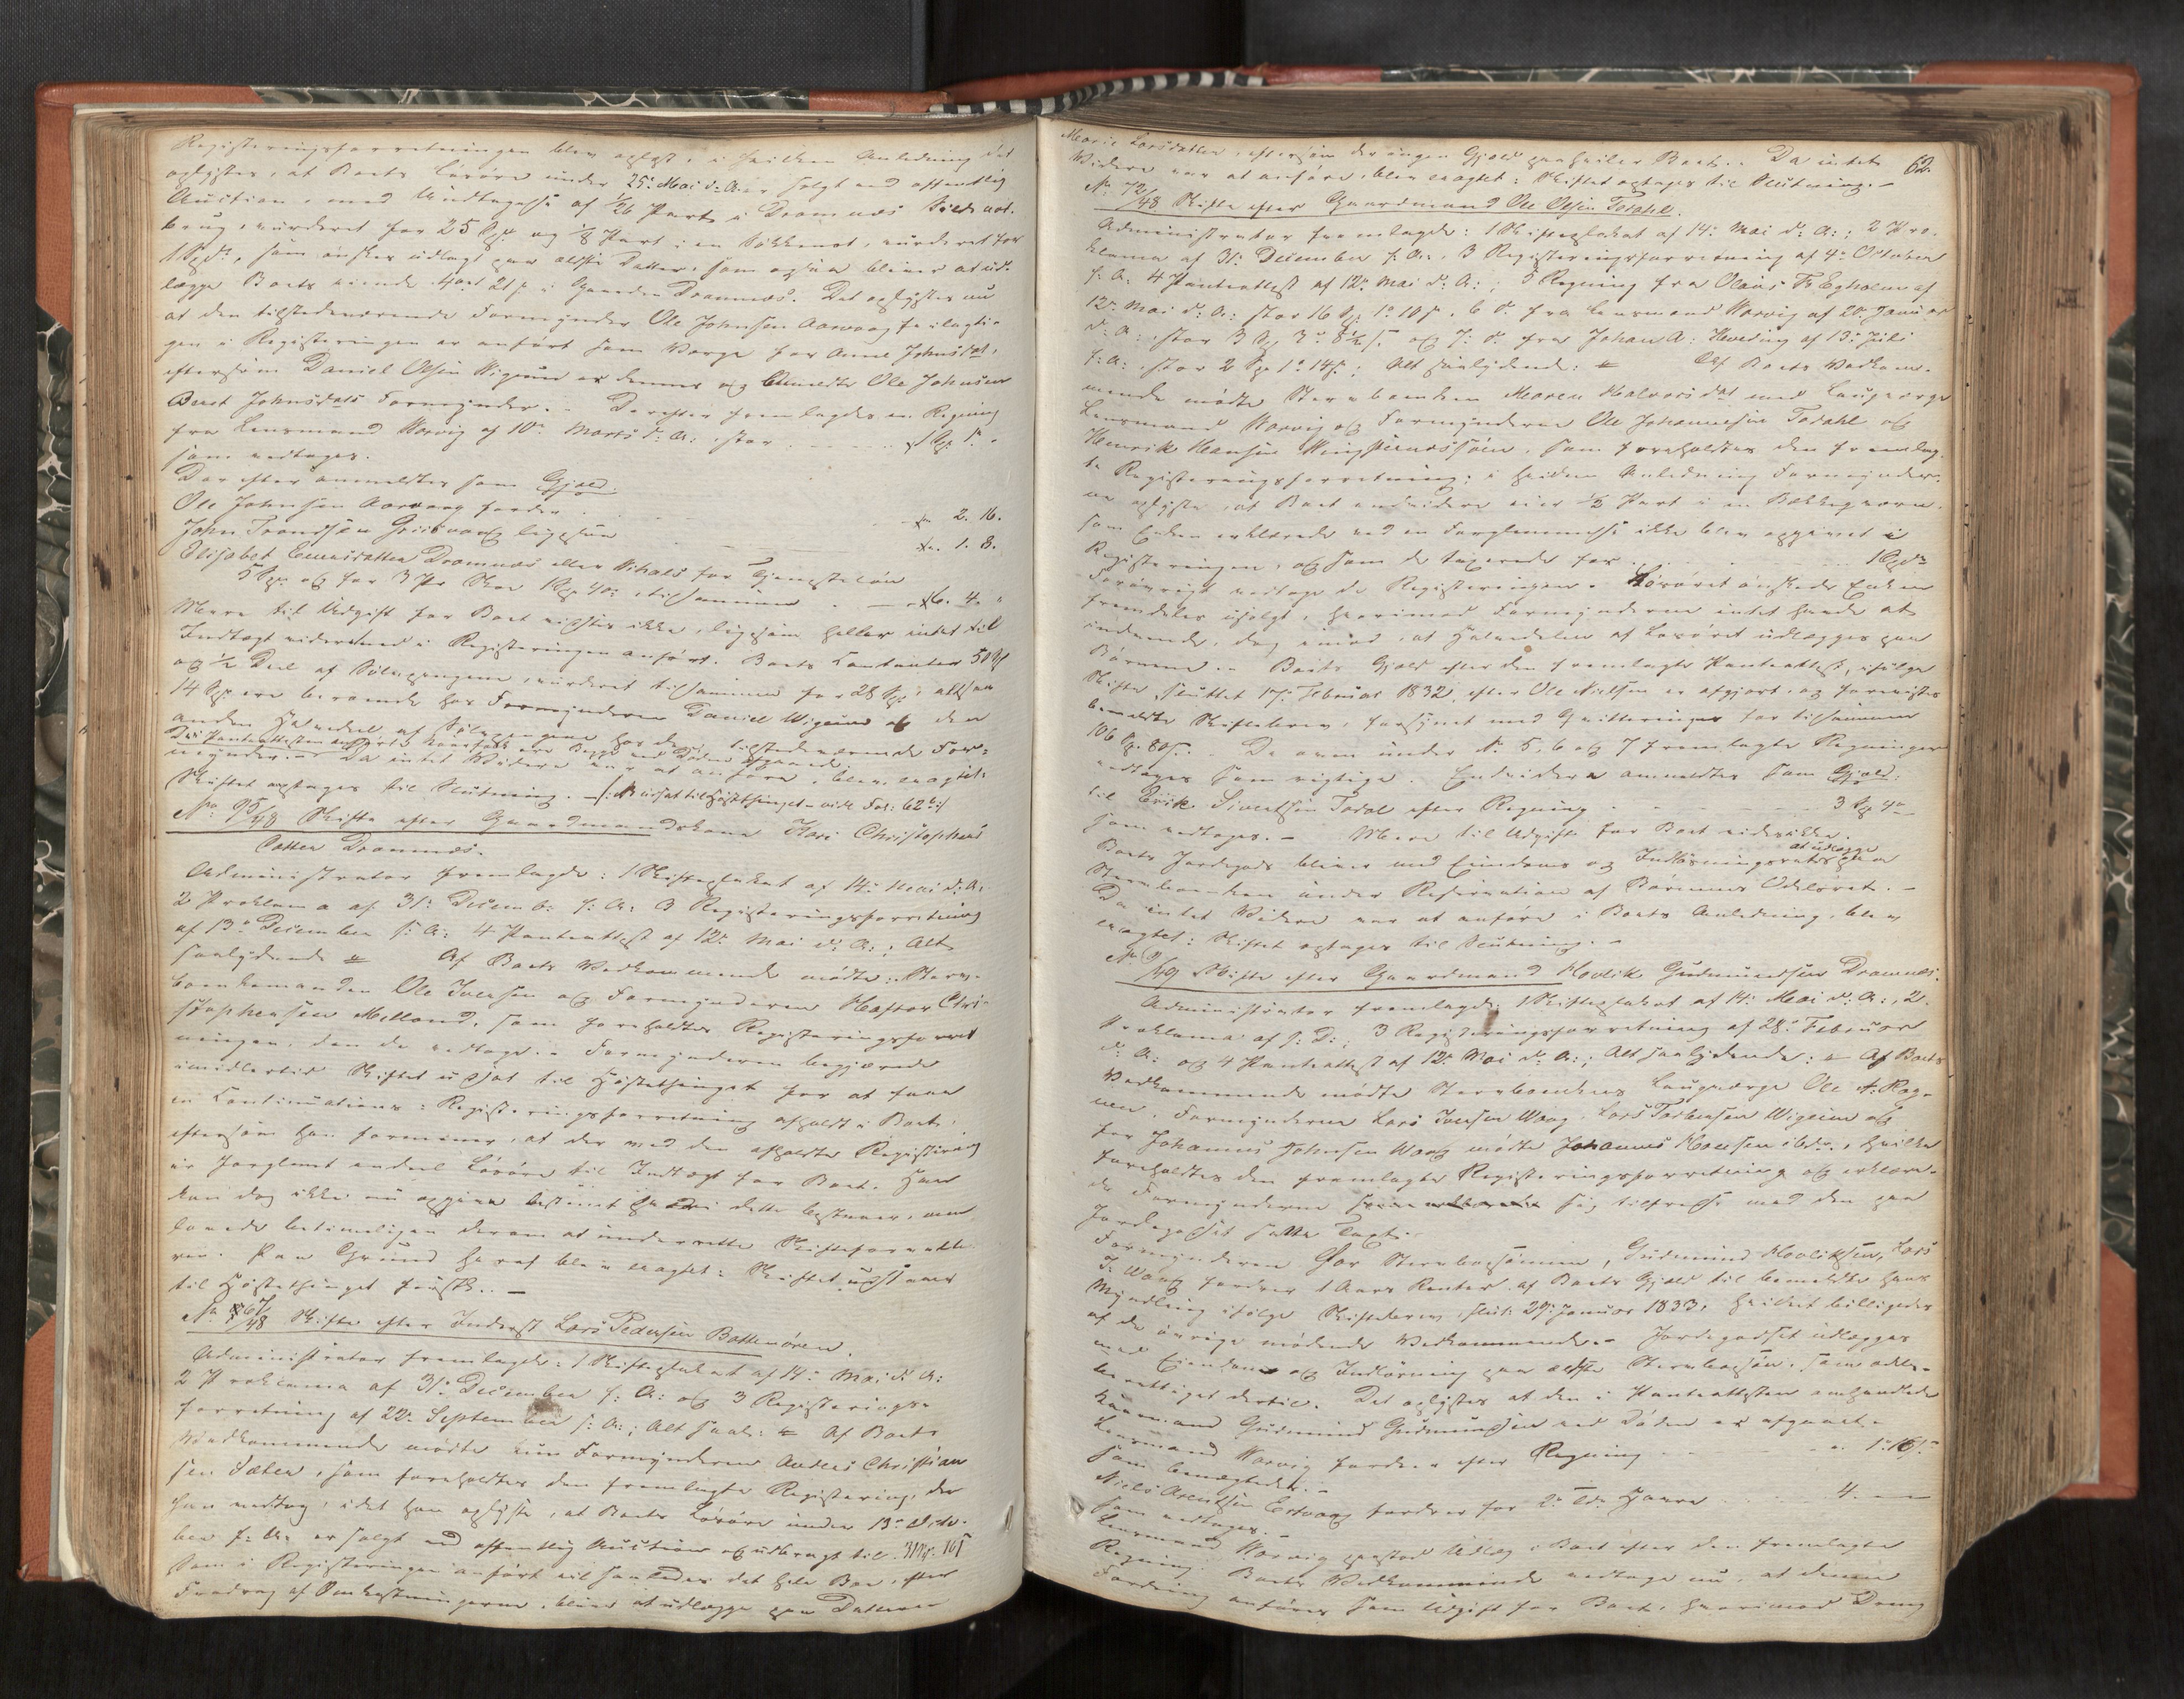 Registeringsforretningen blev oplæst, i hvilken Anledning det
oplystes, at Boets Løsøre under 25de Mai d. A. er solgt ved offentlig
Auction, med Undtagelse af 1/26 Part i Dromnæs Sildenot-
brug, vurderet for 25 Spd og 1/8 Part i en Søkkenot, vurderet for
1 Spd, som ønskes udlagt paa ældste Datter, som ogsaa bliver at ud-
lægge Boets eiende i Gaarden Dromnæs. Det oplystes nu
at den tilstedeværende Formynder Ole Johnsen Aarvaag feilagti-
gen i Registeringen er anført som Værge for Anne Johnsdat.
eftersom Daniel Olsen Wigeim er dennes og bemeldte Ole Johnsen
Berit Johnsdats Formynder. - Derefter fremlagdes en Regning
fra Lensmand Worvig af 10de Marts d. A. stor 1 Sp.
som vedtoges.
Derefter anmeldtes som Gjæld.
Ole Johnsen Aarvaag fordrer 2. 16.
John Trondsen Griisvaag ligesaa 1. 8.
Elisabet Dromnæs eller for Tjenesteløn
5 Spd og for 3 Par Skoe tilsammen 6. 4. "
Mere til Udgift for Boet vidstes ikke, ligesom heller intet til
Indtægt videre end i Registeringen anført. Boets Contanter
og 1/2 Deel af Sølvpengene, vurderet tilsammen for 28 Sp, altsaa
14 Spd ere beroende hos Formynderen Daniel Wigeim og den
anden Halvdeel af Sølvpengene hos den tilstedeværende For-
Det Pantattesten anførte er Begge ved Døden afgaaede.
mynder. - Da intet Videre var at anføre, blev eragtet:
Skiftet optages til Slutning. - /: udsat til Høstthinget - vide Fol: 62 :/
No 95/48 Skifte efter Gaardmandskone Kari Christophers
Datter Dromnæs.
Administrator fremlagde: 1 Skifteplakat af 14de Mai d: A:
2 Proklama af 31te Decemb: f: A: 3 Registeringsforretning
af 13de December f: A: 4 Pantattest af 12te Mai d: A:, Alt
saalydende Af Boets Vedkommende mødte: Sterv-
boenkemanden Ole Iversen og Formynderen Christ-
stophersen Melland, som foreholdtes Registeringsforret-
ningen, den de vedtoge. - Formynderen begjærede
imidlertid Skiftet udsat til Høstethinget for at faae
en Continuations-Registeringsforretning afholdt i Boet,
eftersom han formener, at der ved den afholdte Registering
er forglemt endeel Løsøre til Indtægt for Boet. Han
kan dog ikke nu opgive bestemt hvori dette bestaaer, men
lovede betimeligen derom at underrette Skifteforvalte-
ren. Paa Grund heraf blev eragtet: Skiftet udstaaer
til Høstethinget førstk. -
No 67/48 Skifte efter Inderst Lars Pedersen Bottenøren.
Administrator fremlagde: 1 Skifteplakat af 14de Mai d: A:
2 Proklama af 31te December f: A: og 3 Registerings-
forretning af 22de September f: A:, Alt saal: Af Boets
Vedkommende mødte kun Formynderen Anders Christian-
sen Sæter, som foreholdtes den fremlagte Registering, der
han vedtog, idet han oplyste, at Boets Løsøre under 13de Octo-
ber f: A: er solgt ved offentlig Auction og udbragt til
som i Registeringen anført vil saaledes det hele Boe, efter
Fradrag af Omkostningerne, blive at udlægge paa Datteren
62.
Marie Larsdatter, eftersom der ingen Gjæld paahviler Boet. - Da intet
Videre var at anføre, blev eragtet: Skiftet optages til Slutning. -
No 72/48 Skifte efter Gaardmand Ole Olsen Todahl.
Administrator fremlagde: 1 Skifteplakat af 14de Mai d: A:, 2 Pro-
klama af 31te December f: A:, 3 Registeringsforretning af 4de October
f: A: 4 Pantattest af 12te Mai d: A:, 5 Regning fra Olaus Fr Egholm af
12te Mai d: A: stor 16 Sp 1 10 s, 6 do fra Lensmand Worvig af 20de Januar
d: A: stor 3 Sp 3 8 1/2 s og 7 do fra Johan A: af 13de Juli
f: A: stor 2 Sp 1 14 s; Alt saalydende: Af Boets Vedkom-
mende mødte Stervboenken Maren Halvorsdat med Laugværge
Lensmand Worvig og Formynderne Ole Johannesen Todahl og
Henrik Hansen, som foreholdtes den fremlag-
te Registeringsforretning; i hvilken Anledning Formynder-
ne oplyste, at Boet endvidere eier 1/2 Part i en Bækkeqværn,
som Enken erklærede ved en Forglemmelse ikke blev opgivet i
Registeringen, og som de taxerede for 1 Spd
Forøvrigt vedtoge de Registeringen. Løsøret ønskede Enken
fremdeles usolgt, hvorimod Formynderne intet havde at
indvende, dog imod, at Halvdelen af Løsøret udlægges paa
Børnene. - Boets Gjæld efter den fremlagte Pantattest, ifølge
Skifte, sluttet 17de Februar 1832, efter Ole Nielsen er afgjort, og forevistes
bemeldte Skiftebrev, forsynet med Qvitteringer for tilsammen
106 Sp. 80 s. - De oven under No 5, 6 og 7 fremlagte Regninger
vedtoges som rigtige. Endvidere anmeldtes som Gjæld:
til Erik Sivertsen Todal efter Regning 3 Sp 4
som vedtoges. - Mere til Udgift for Boet vides ikke.
Boets Jordegods bliver med Eiendoms og Indløsningsret at udlægge paa
Stervboenken under Reservation af Børnenes Odelsret. -
Da intet Videre var at anføre i Boets Anledning, blev
eragtet: Skiftet optages til Slutning. -
No 9/49 Skifte efter Gaardmand Hovlik Gudmundsen Dromnæs.
Administrator fremlagde: 1 Skifteplakat af 14de Mai d: A:, 2
Proklama af s: D:, 3 Registeringsforretning af 28de Februar
d: A: og 4 Pantattest af 12te Mai d: A:; Alt saalydende: Af Boets
Vedkommende mødte Stervboenkens Laugværge Ole A: Rog-
nen, Formynderne Lars Iversen Waag, Lars Torbersen Wigeim og
for Johannes Johnsen Waag mødte Johannes Hansen ibd., hvilke
foreholdtes den fremlagte Registeringsforretning og erklære-
de Formynderne sig tilfreds med den paa
Jordegodset satte Taxt.
Formynderen for Stervboesønnen, Gudmund Hovliksen, Lars
I: Waag fordrer 1 Aars Renter af Boets Gjæld til bemeldte hans
Myndling ifølge Skiftebrev, slut: 29de Januar 1833, hvilket billigedes
af de øvrige mødende Vedkommende. - Jordegodset udlægges
med Eiendoms og Indløsning paa ældste Stervboesøn, som odels-
berettiget dertil. Det oplystes at den i Pantattesten omhandlede
Kaarmand Gudmund Gudmundsen ved Døden er afgaaet. -
Lensmand Worvig fordrer efter Regning 1. 16 s.
som benægtedes. -
Niels Arentsen Ertvaag fordrer for 2de Faare 4. - -
som vedtoges. -
Lensmand Worvig paastod Udlæg i Boet efter den fremlagte
Regning. Boets Vedkommende vedtoge nu, at denne
Fordring anføres som Udgift for Boet, hvorimod Dreng